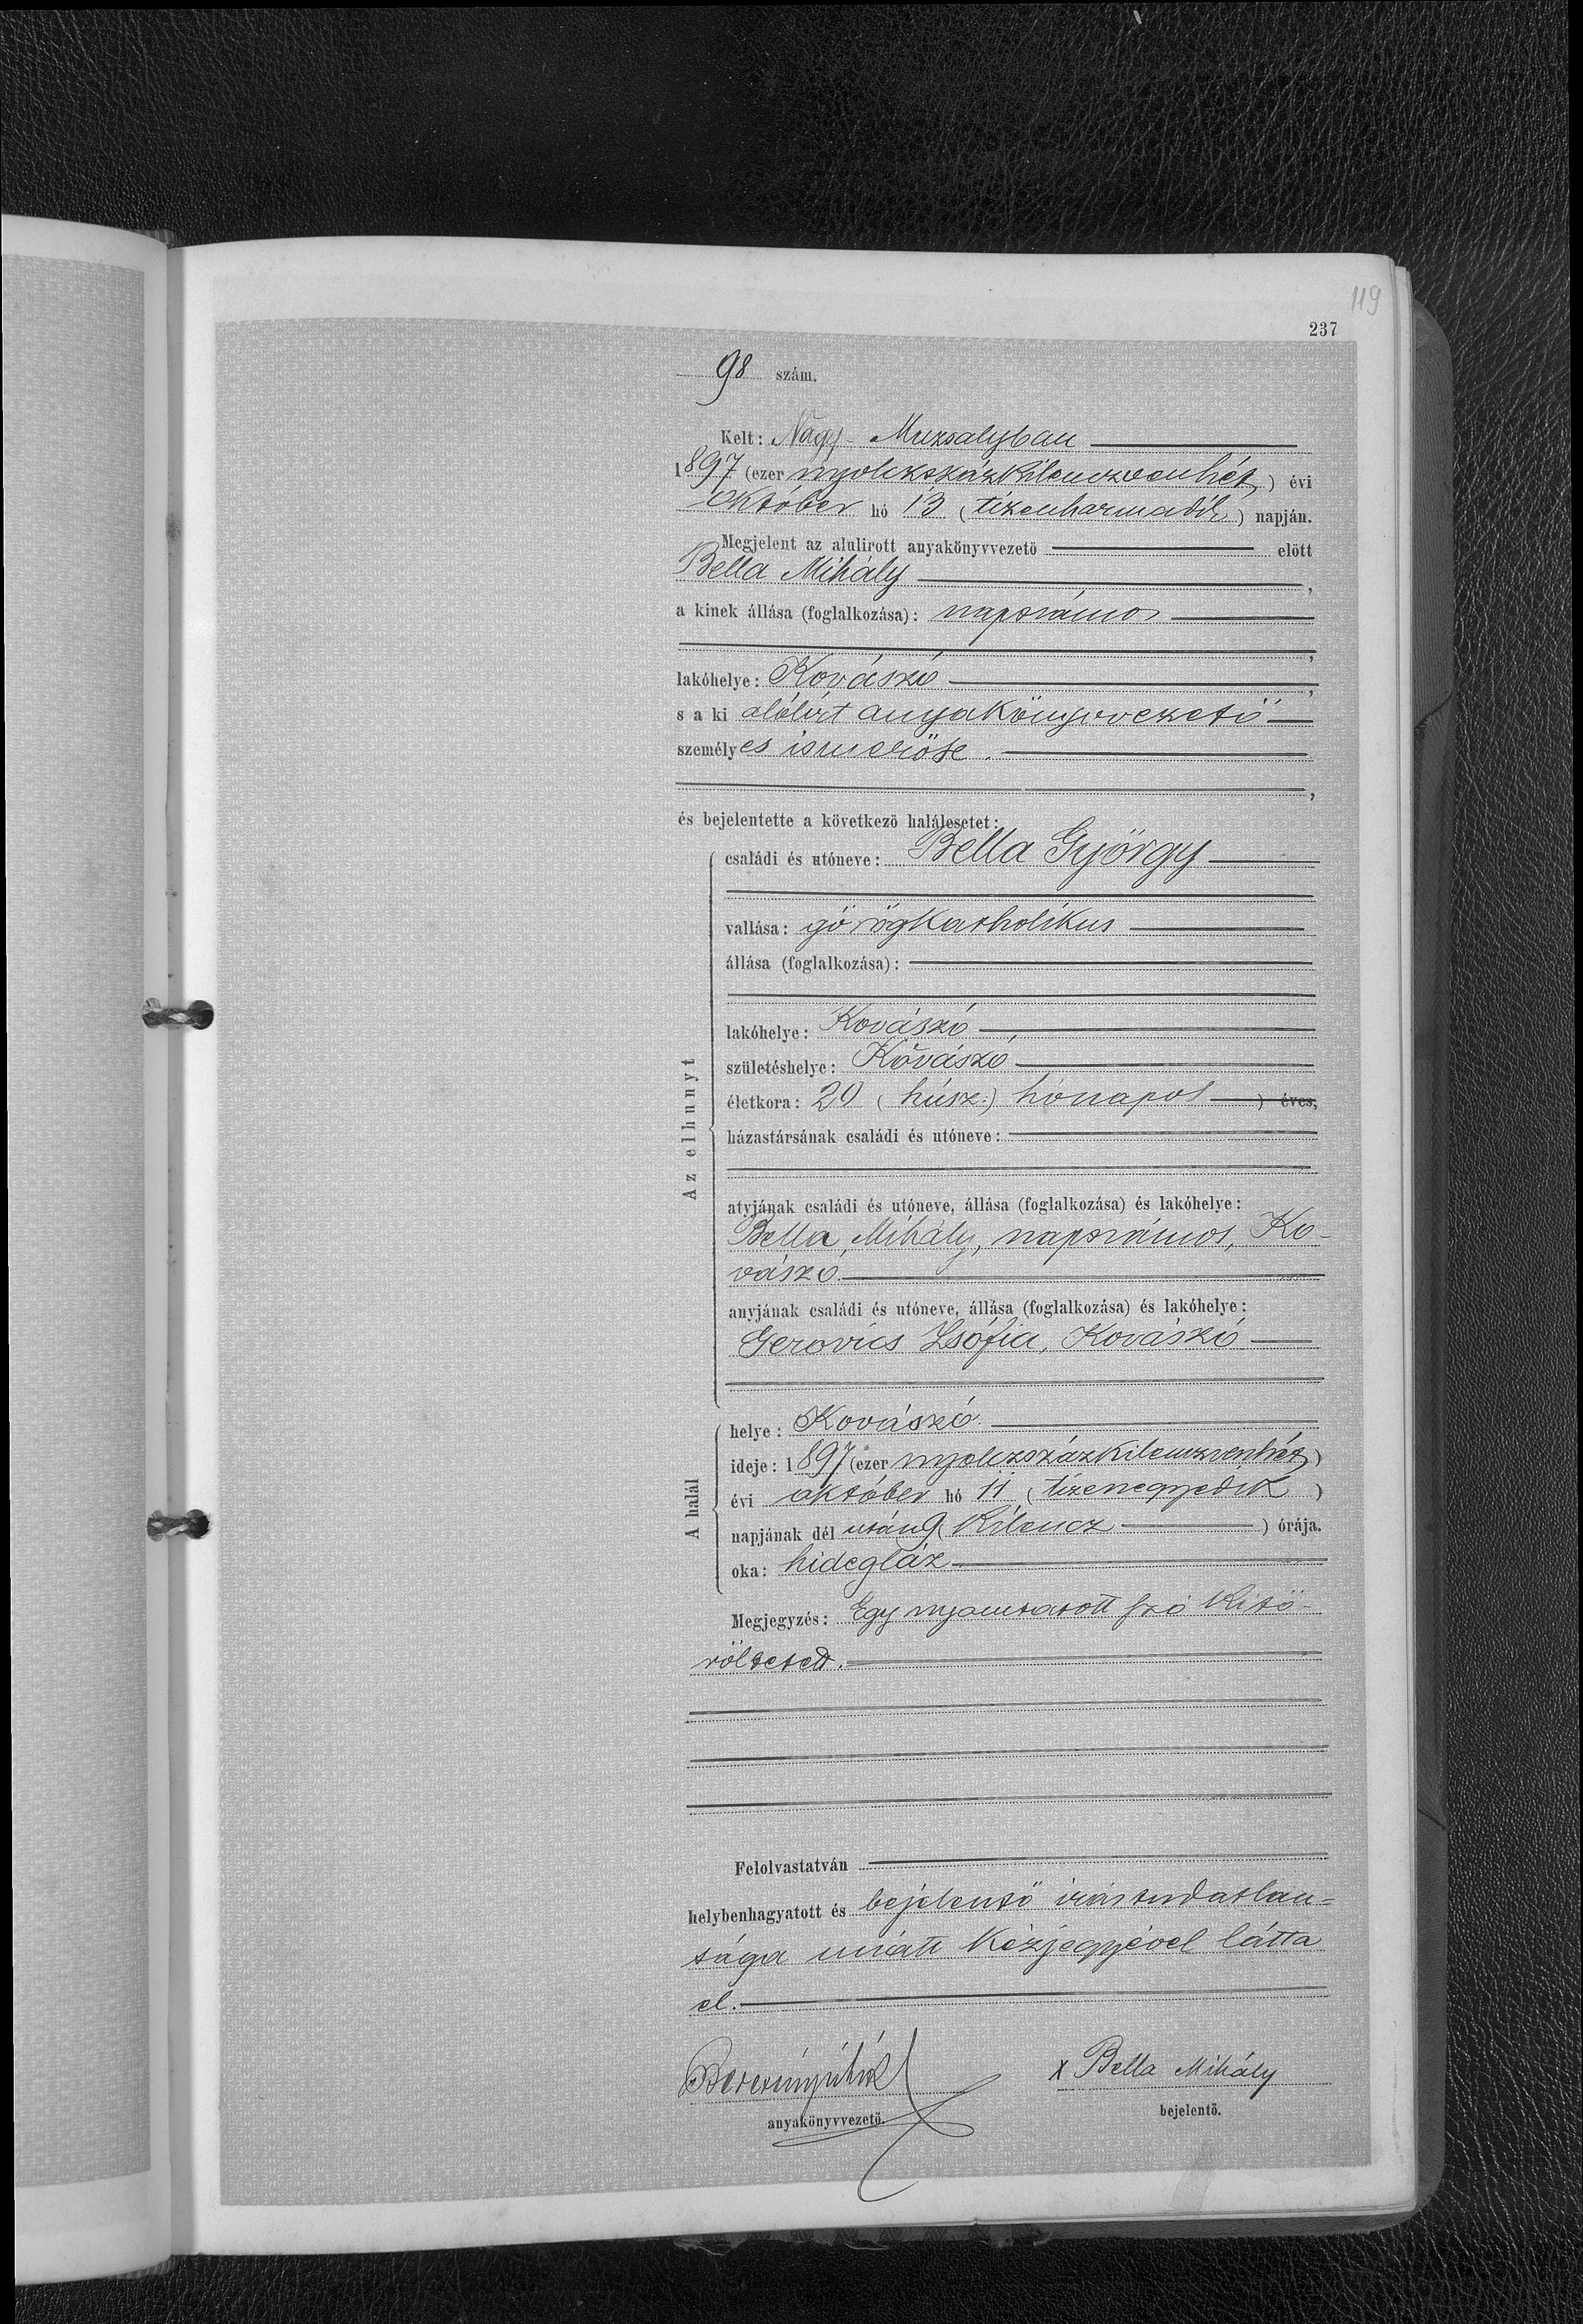 119
237
98 szám.
Kelt: Nagy-Muzsalyban
1897 (ezer nyolczszázkilenczvenhét) évi
október hó 13 (tizenharmadik) napján.
Megjelent az alulirott anyakönyvvezető előtt
Bella Mihály,
a kinek állása (foglalkozása): napszámos
,
lakóhelye: Kovászó,
s a ki alólirt anyakönyvvezető
személyes ismerőse.
,
és bejelentette a következő halálesetet:
Az elhunyt
családi és utóneve: Bella György
vallása: görögkatholikus
állása (foglalkozása):
lakóhelye: Kovászó
születéshelye: Kovászó
életkora: 20 (húsz) hónapos ) éves,
házastársának családi és utóneve:
atyjának családi és utóneve, állása (foglalkozása) és lakóhelye:
Bella Mihály, napszámos, Ko-
vászó.
anyjának családi és utóneve, állása (foglalkozása) és lakóhelye:
Gerovics Zsófia, Kovászó
A halál
helye: Kovászó.
ideje: 1897 (ezer nyolczszázkilenczvenhét)
évi október hó 11 (tizenegyedik)
napjának dél után 9 (kilencz) órája.
oka: hidegláz
Megjegyzés: Egy nyomtatott szó kitö-
röltetett.
Felolvastatván
helybenhagyatott és bejelentő irástudatlan-
sága miatt kézjegyével látta
el.
x Bella Mihály
anyakönyvvezető.
bejelentő.